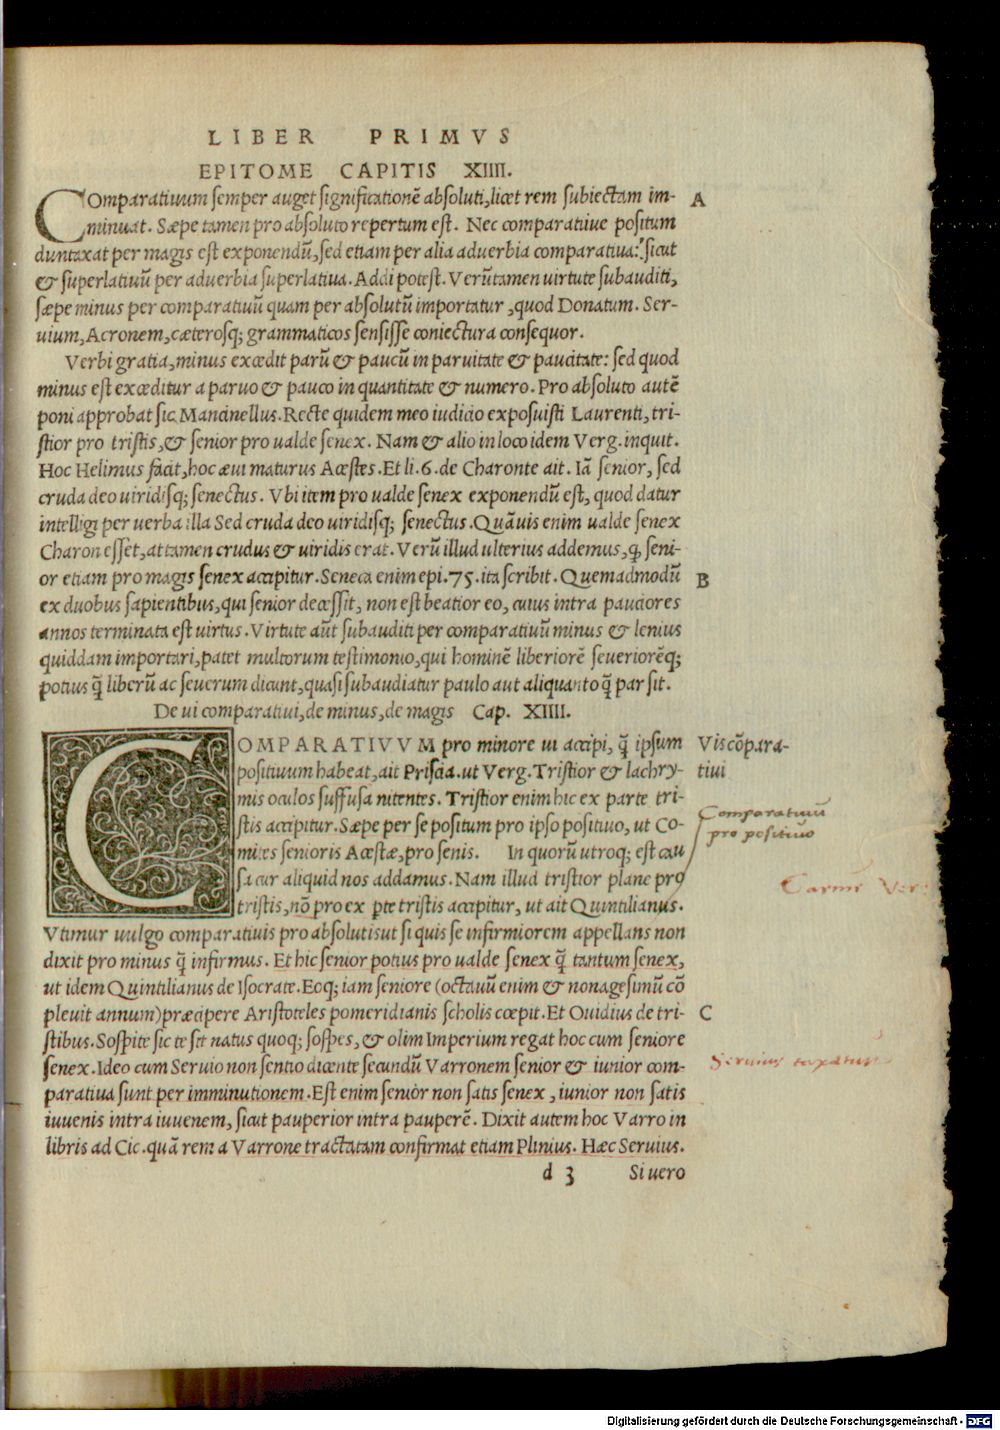 LIBER PRIMVS
EPITOME CAPITIS XIIII.
COmparatiuum semper auget significationē absoluti, licet rem subiectam im-
minuat. Sæpe tamen pro absoluto repertum est. Nec comparatiue positum
duntaxat per magis est exponendū, sed etiam per alia aduerbia comparatiua: sicut
& superlatiuū per aduerbia superlatiua. Addi potest. Verūtamen virtute subauditi,
sæpe minus per comparatiuū quam per absolutū importatur, quod Donatum. Ser-
uium, Acronem, cæterosq; grammaticos sensisse coniectura consequor.
Verbi gratia, minus excedit parū & paucū in paruitate & paucitate: sed quod
minus est exceditur a paruo & pauco in quantitate & numero. Pro absoluto autē
poni approbat sic Mancinellus. Recte quidem meo iudicio exposuisti Laurenti, tri-
stior pro tristis, & senior pro ualde senex. Nam & alio in loco idem Verg. inquit.
Hoc Helimus facit, hoc æui maturus Acestes. Et li. 6. de Charonte ait. Iā senior, sed
cruda deo uiridisq; senectus. Vbi item pro ualde senex exponendū est, quod datur
intelligi per uerba illa Sed cruda deo uiridisq; senectus. Quāuis enim ualde senex
Charon esset, attamen crudus & uiridis erat. Verū illud ulterius addemus, ꝙ seni-
or etiam pro magis senex accipitur. Seneca enim epi. 75. ita scribit. Quemadmodū
ex duobus sapientibus, qui senior decessit, non est beatior eo, cuius intra pauciores
annos terminata est uirtus. Virtute aūt subauditi per comparatiuū minus & lenius
quiddam importari, patet multorum testimonio, qui hominē liberiorē seueriorēq;
potius q̄ liberū ac seuerum dicunt, quasi subaudiatur paulo aut aliquanto q̄ par sit.
De ui comparatiui, de minus, de magis Cap. XIIII.
COMPARATIVVM pro minore ui accipi, q̄ ipsum
positiuum habeat, ait Priscia. ut Verg. Tristior & lachry-
mis oculos suffusa nitentes. Tristior enim hic ex parte tri-
stis accipitur. Sæpe per se positum pro ipso positiuo, ut Co-
mites senioris Acestæ, pro senis. In quorū utroq; est cau
sa cur aliquid nos addamus. Nam illud tristior plane pro
tristis, nō pro ex pte tristis accipitur, ut ait Quintilianus.
Vtimur uulgo comparatiuis pro absolutis ut si quis se infirmiorem appellans non
dixit pro minus q̄ infirmus. Et hic senior potius pro ualde senex q̄ tantum senex,
ut idem Quintilianus de Isocrate. Eoq; iam seniore (octauū enim & nonagesimū cō
pleuit annum) præcipere Aristoteles pomeridianis scholis cœpit. Et Ouidius de tri-
stibus. Sospite sic te sit natus quoq; sospes, & olim Imperium regat hoc cum seniore
senex. Ideo cum Seruio non sentio dicente secundū Varronem senior & iunior com-
paratiua sunt per imminutionem. Est enim senior non satis senex, iunior non satis
iuuenis intra iuuenem, sicut pauperior intra pauperē. Dixit autem hoc Varro in
libris ad Cic. quā rem a Varrone tractatam confirmat etiam Plinius. Hæc Seruius.
d 3 Si uero
A
B
Vis cōpara-
tiui
Comparatiuū
pro positiuo
C
Seruius taxatur
Digitalisierung gefördert durch die Deutsche Forschungsgemeinschaft - DFG